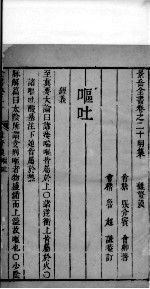 景岳全書卷之二十明集 雜證謨
會稽 張介賓 會卿著
會稽 魯超 謙菴訂
嘔吐
經義
至真要大論曰諸痿喘嘔皆屬於上○諸逆衝上皆屬於火○
諸嘔吐酸暴注下迫皆屬於熱
脈解篇曰太陰所謂食則嘔者物盛滿而上溢故嘔也○少陰